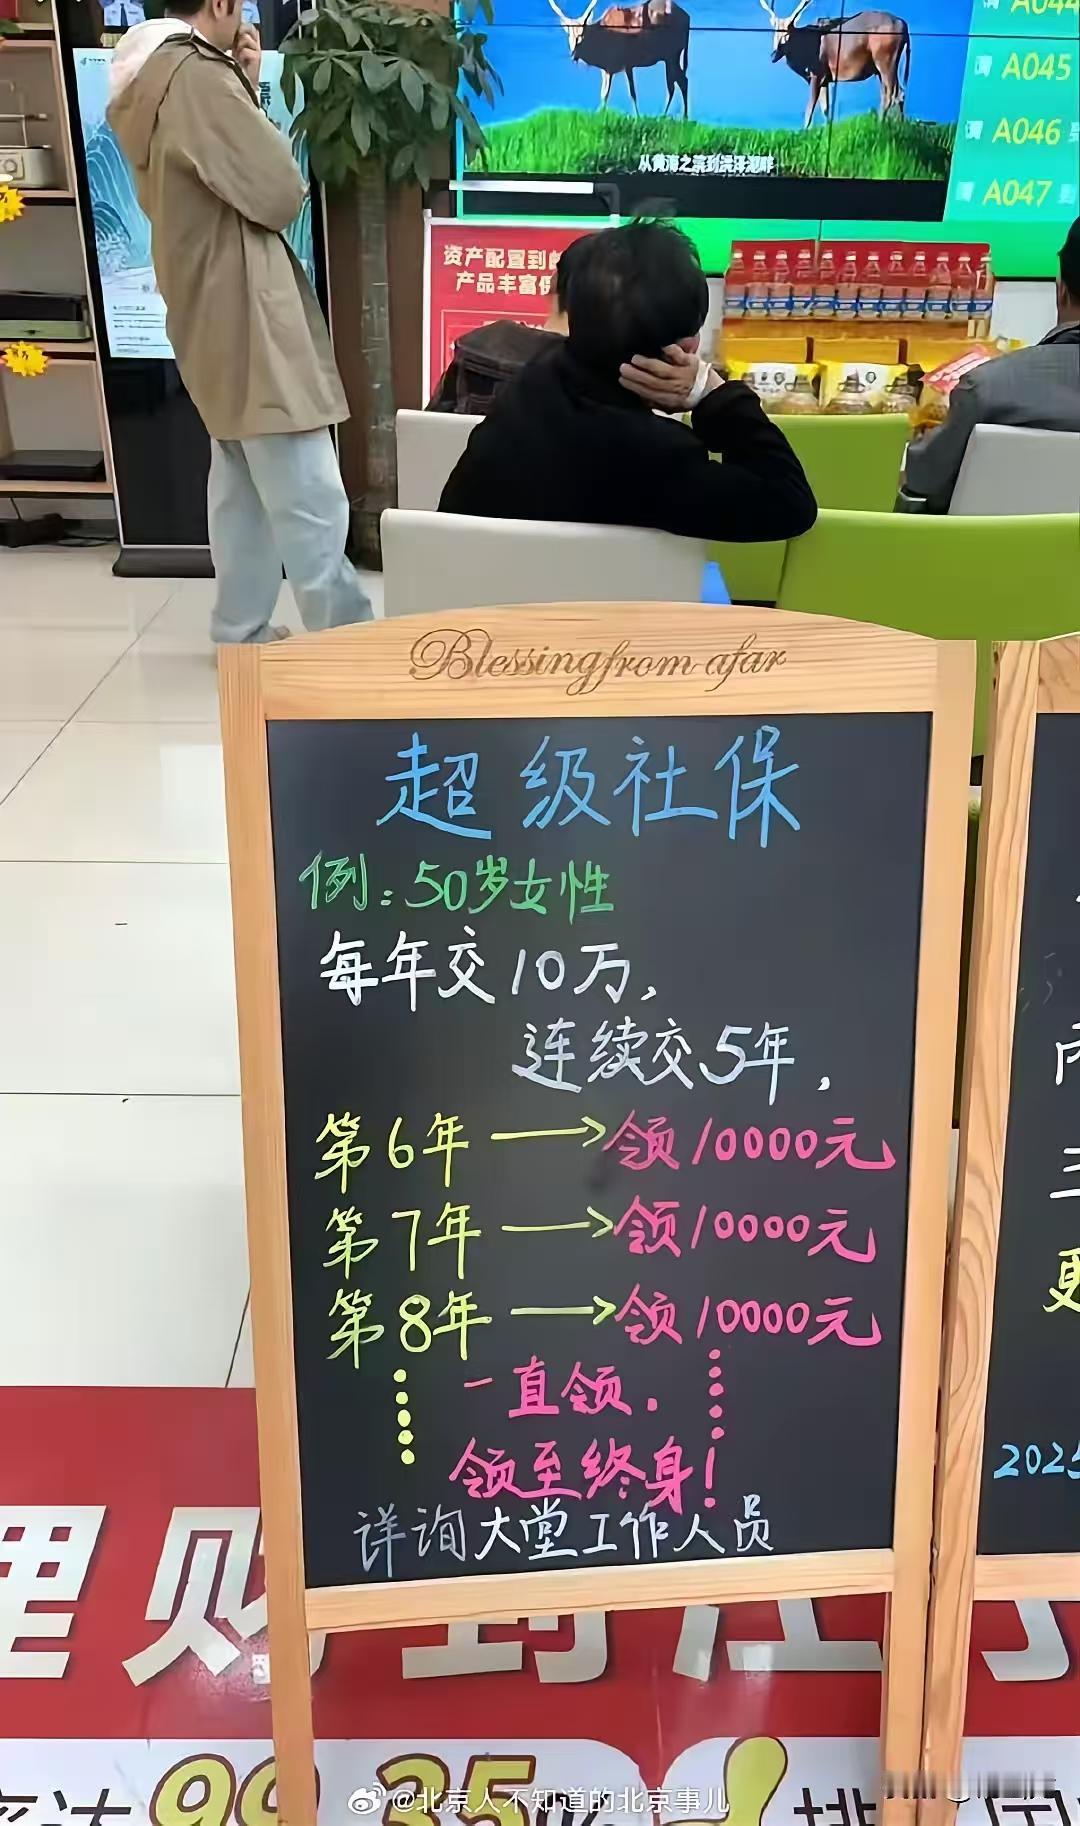 A044
A045
A046
A047
从黄海之滨到洪泽湖畔
资产配置到
产品丰富
Blessing from afar
超级社保
例:50岁女性
每年交10万,
连续交5年,
第6年→领10000元
第7年→领10000元
第8年→领10000元
一直领.
领至终身!
详询大堂工作人员
2025
理财到江
99.35%
@北京人不知道的北京事儿